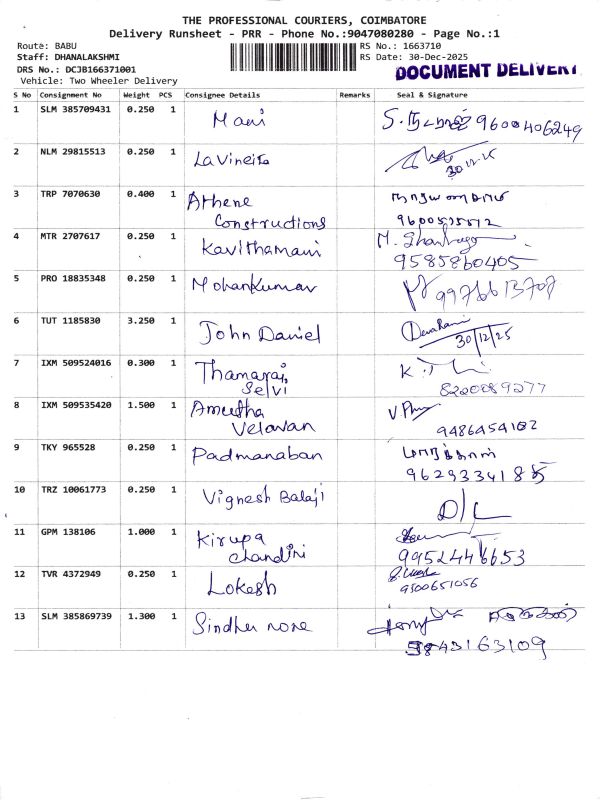 THE PROFESSIONAL COURIERS, COIMBATORE
Delivery Runsheet - PRR - Phone No.:9047080280 - Page No.:1
Route: BABU
Staff: DHANALAKSHMI
DRS No.: DCJB166371001
Vehicle: Two Wheeler Delivery
RS No.: 1663710
RS Date: 30-Dec-2025
DOCUMENT DELIVERY
S No Consignment No Weight PCS Consignee Details Remarks Seal & Signature
1 SLM 385709431 0.250 1 Mani 9600406249
2 NLM 29815513 0.250 1 Lavineita 30-12-25
3 TRP 7070630 0.400 1 Athene
Constructions
4 MTR 2707617 0.250 1 Kavithamani
9585860405
5 PRO 18835348 0.250 1 Mohankumar
6 TUT 1185830 3.250 1 John Daniel
30/12/25
7 IXM 509524016 0.300 1 Thamarai
Selvi 8220089277
8 IXM 509535420 1.500 1 Amutha
Velavan
9 TKY 965528 0.250 1 Padmanaban
10 TRZ 10061773 0.250 1 Vignesh Balaji D/L
11 GPM 138106 1.000 1 Kirupa
chandini 9952446653
12 TVR 4372949 0.250 1 Lokesh
9500651056
13 SLM 385869739 1.300 1 Sindhu
9843163109